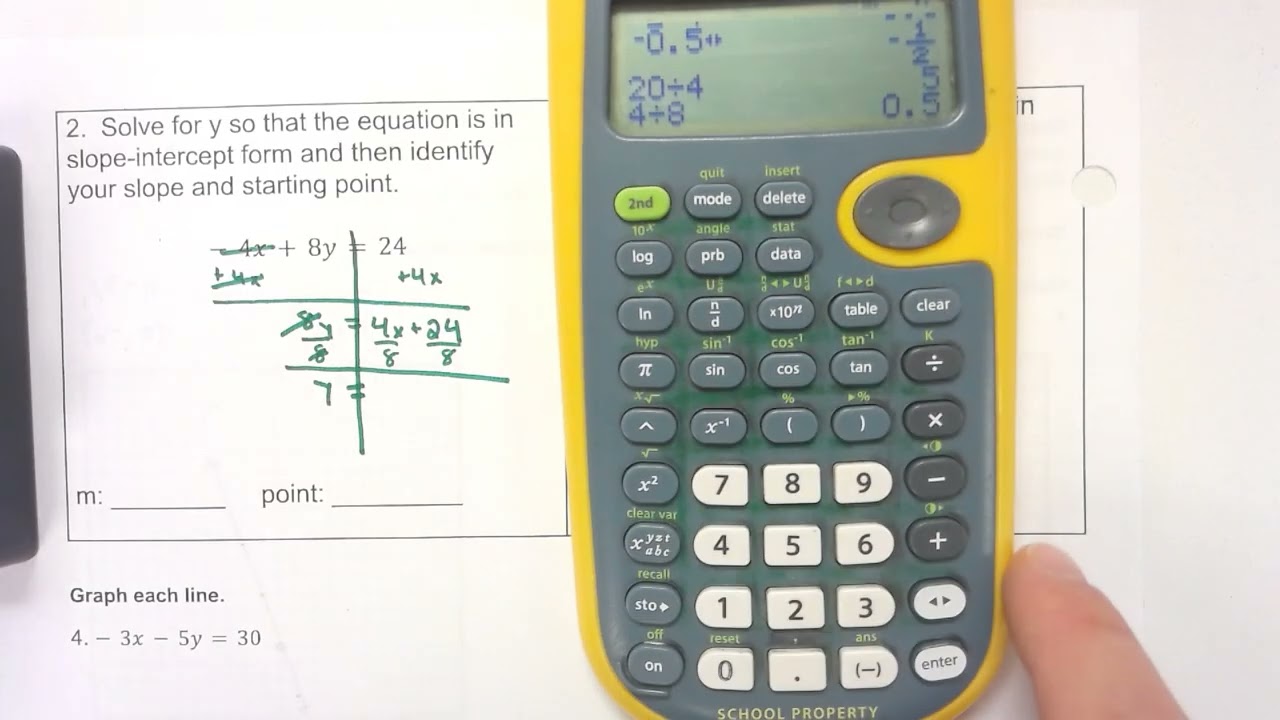 2. Solve for y so that the equation is in
slope-intercept form and then identify
your slope and starting point.
- 4x + 8y = 24
+4x +4x
8y = 4x + 24
8 8 8
y =
m: ________ point: ________
Graph each line.
4. − 3x − 5y = 30
in
-0.5◂▸ -1/2
20÷4 5
4÷8 0.5
quit insert
2nd mode delete
10^x angle stat
log prb data
e^x U n/d n/d◂▸U n/d f◂▸d
ln n/d ×10^n table clear
hyp sin⁻¹ cos⁻¹ tan⁻¹ K
π sin cos tan ÷
x√ % ▸%
^ x⁻¹ ( ) ×
√
x² 7 8 9 −
clear var
x yzt abc 4 5 6 +
recall
sto▸ 1 2 3 ◂▸
off reset , ans
on 0 . (−) enter
SCHOOL PROPERTY